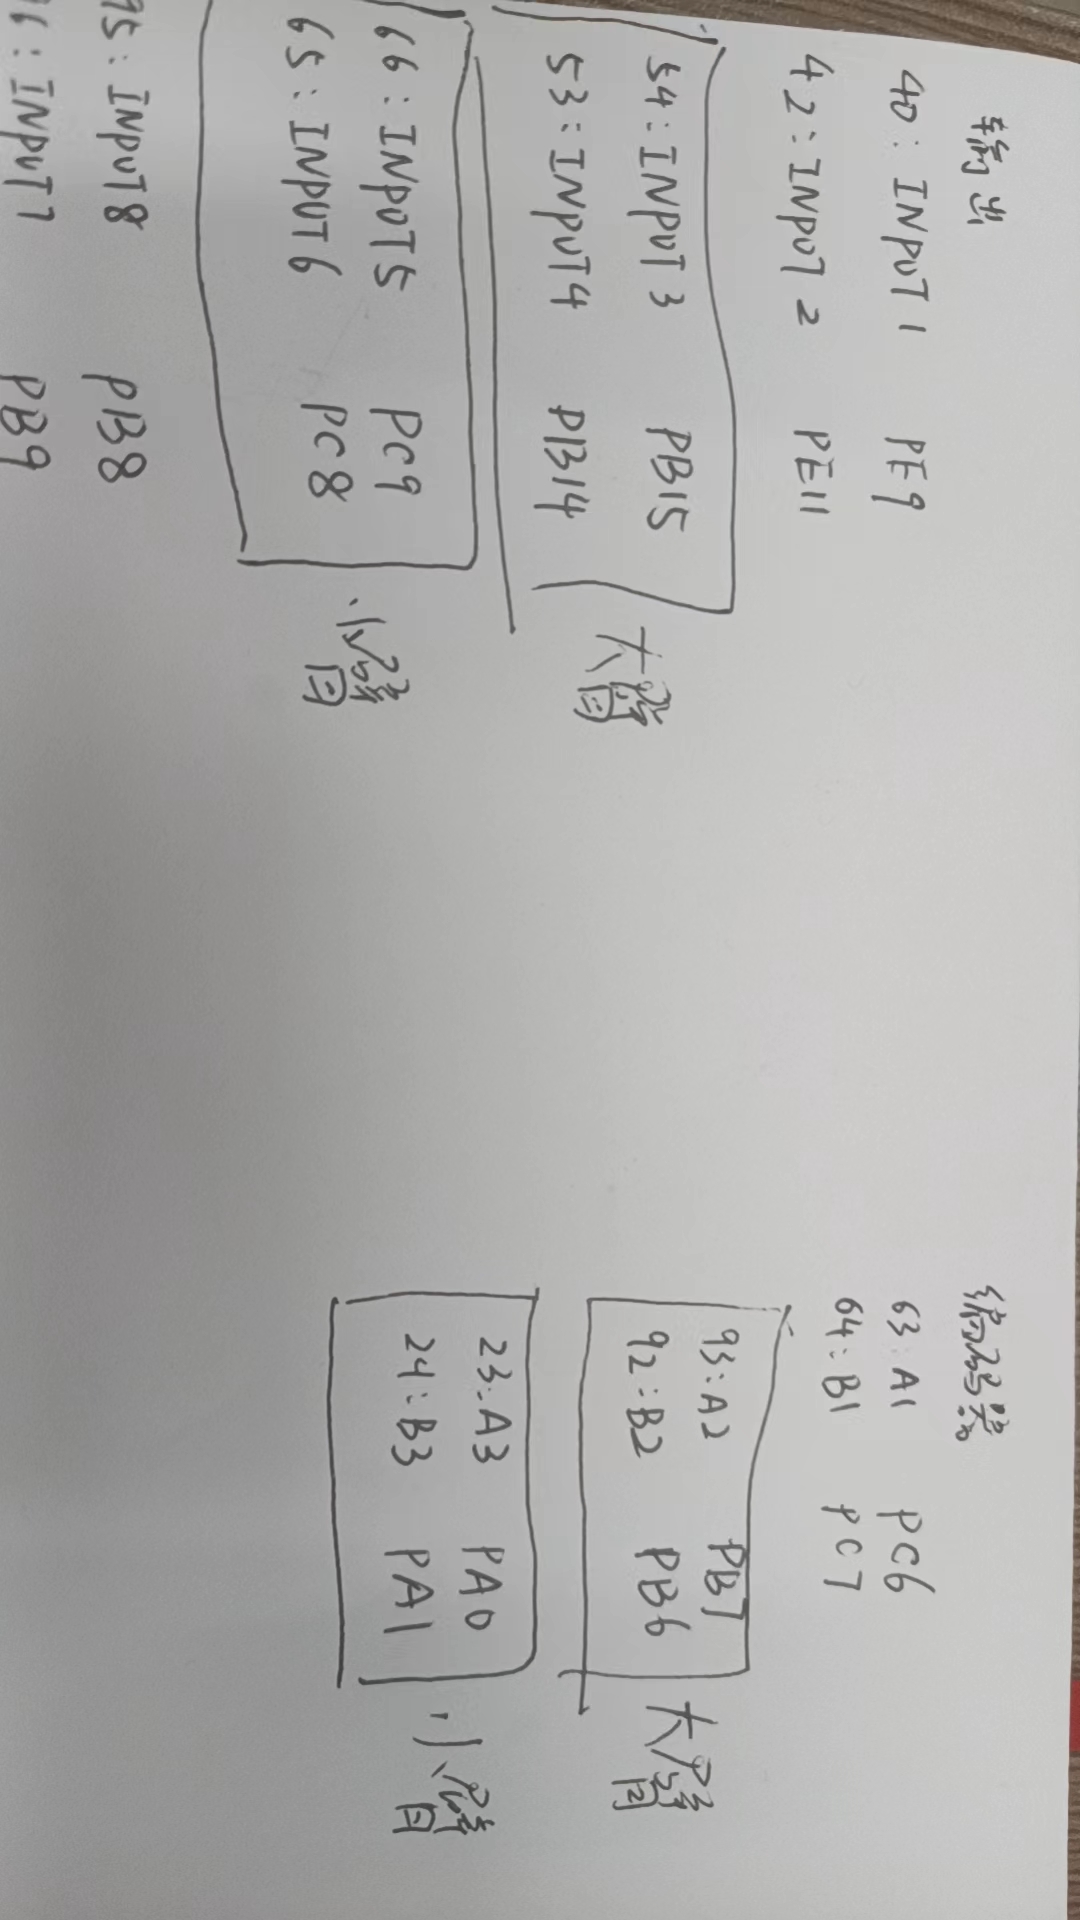 输出
40: INPUT 1 PE9
42: INPUT 2 PE11
54: INPUT 3 PB15
53: INPUT4 PB14
大臂
66: INPUT5 PC9
65: INPUT6 PC8
小臂
95: INPUT8 PB8
96: INPUT7 PB9
编码器
63: A1 PC6
64: B1 PC7
93: A2 PB7
92: B2 PB6
大臂
23: A3 PA0
24: B3 PA1
小臂